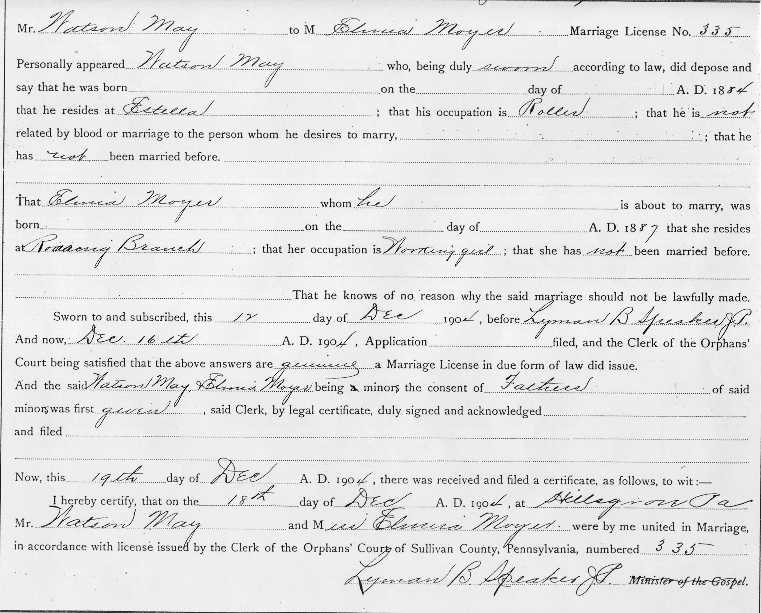 Mr. Watson May to M Elmira Moyer Marriage License No. 335
Personally appeared Watson May who, being duly sworn according to law, did depose and
say that he was born on the day of A. D. 1884
that he resides at Estella ; that his occupation is Roller ; that he is not
related by blood or marriage to the person whom he desires to marry, ; that he
has not been married before.
That Elmira Moyer whom he is about to marry, was
born on the day of A. D. 1887 that she resides
at Branch ; that her occupation is Working girl ; that she has not been married before.
That he knows of no reason why the said marriage should not be lawfully made.
Sworn to and subscribed, this 12 day of Dec 1904, before Lyman B Speaker J.P.
And now, Dec. 16th A. D. 1904, Application filed, and the Clerk of the Orphans'
Court being satisfied that the above answers are genuine a Marriage License in due form of law did issue.
And the said Watson May & Elmira Moyer being minors the consent of Fathers of said
minors was first given , said Clerk, by legal certificate, duly signed and acknowledged
and filed
Now, this 19th day of Dec A. D. 1904, there was received and filed a certificate, as follows, to wit:—
I hereby certify, that on the 18th day of Dec A. D. 1904, at Hillsgrove Pa
Mr. Watson May and Miss Elmira Moyer were by me united in Marriage,
in accordance with license issued by the Clerk of the Orphans' Court of Sullivan County, Pennsylvania, numbered 335
Lyman B Speaker J.P. Minister of the Gospel.